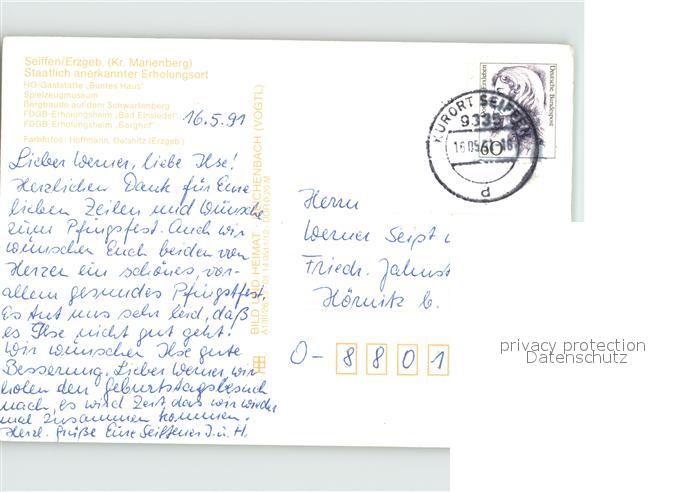 Seiffen/Erzgeb. (Kr. Marienberg)
Staatlich anerkannter Erholungsort
HO-Gaststätte „Buntes Haus"
Spielzeugmuseum
Bergbaude auf dem Schwartenberg
FDGB-Erholungsheim „Bad Einsiedel"
FDGB-Erholungsheim „Berghof"
Farbfotos: Hofmann, Oelsnitz (Erzgeb.)
16.5.91
Lieber Werner, liebe Ilse!
Herzlichen Dank für Eure
lieben Zeilen und Wünsche
zum Pfingsfest. Auch wir
wünschen Euch beiden von
Herzen ein schönes, vor-
allem gesundes Pfingstfest.
Es tut uns sehr leid, daß
es Ilse nicht gut geht.
Wir wünschen Ilse gute
Besserung. Lieber Werner, wir
holen den Geburtstagsbesuch
nach, es wird Zeit, das wir wieder
mal zusammen kommen.
Herzl. Grüße Eure Seiffener J. u. H.
BILD UND HEIMAT REICHENBACH (VOGTL)
Deutsche Bundespost
60
KURORT SEIFFEN
9335
d
Herrn
Werner Seipt
Friedr. Jahnst
Hörnitz b.
O- 8 8 0 1
privacy protection
Datenschutz